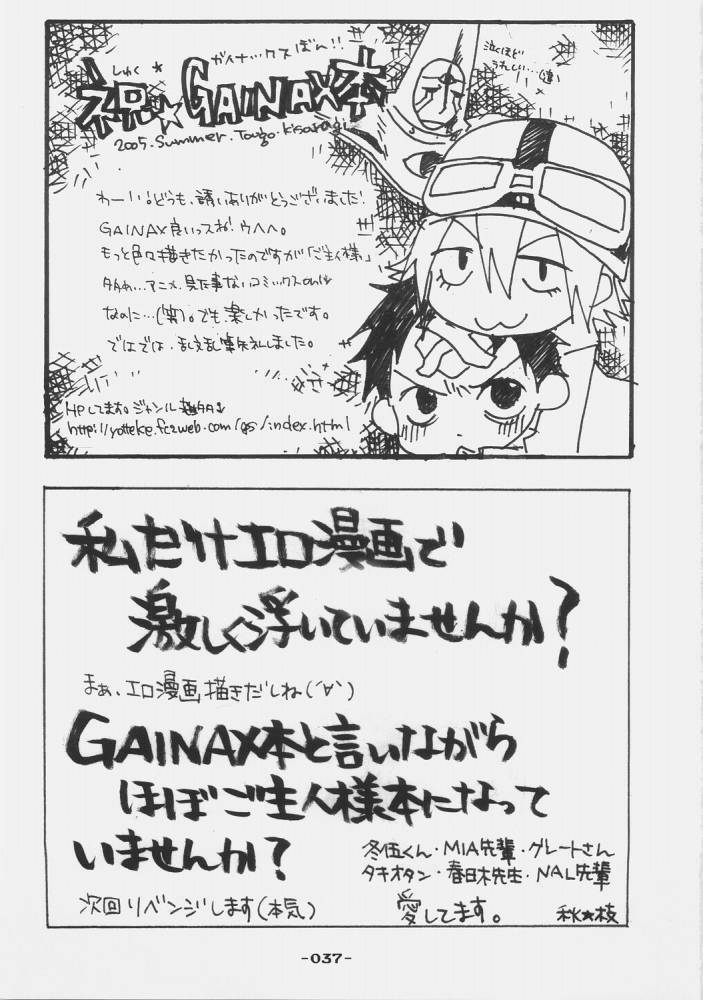 しゅく★
ガイナックスぼん!!
祝☆GAINAX本
2005.Summer.Tougo.Kisaragi
泣くほど
うれしい…(違)
わーい!どうも、誘いありがとうございました!
GAINAX良いっスね!ウヘヘ。
もっと色々描きたかったのですが「ご主人様」
アニメ、見た事ないコミックスonly
なのに…(笑)。でも楽しかったです。
ではでは、乱文乱筆失礼しました。
HPしてます。ジャンル
http://yotteke.fc2web.com/gs/index.html
私だけエロ漫画で
激しく浮いていませんか?
まぁ、エロ漫画描きだしね(´∀`)
GAINAX本と言いながら
ほぼご主人様本になって
いませんか?
冬伍くん・MIA先輩・グレートさん
タキオタン・春日木先生・NAL先輩
次回リベンジします(本気)
愛してます。
秋★枝
-037-